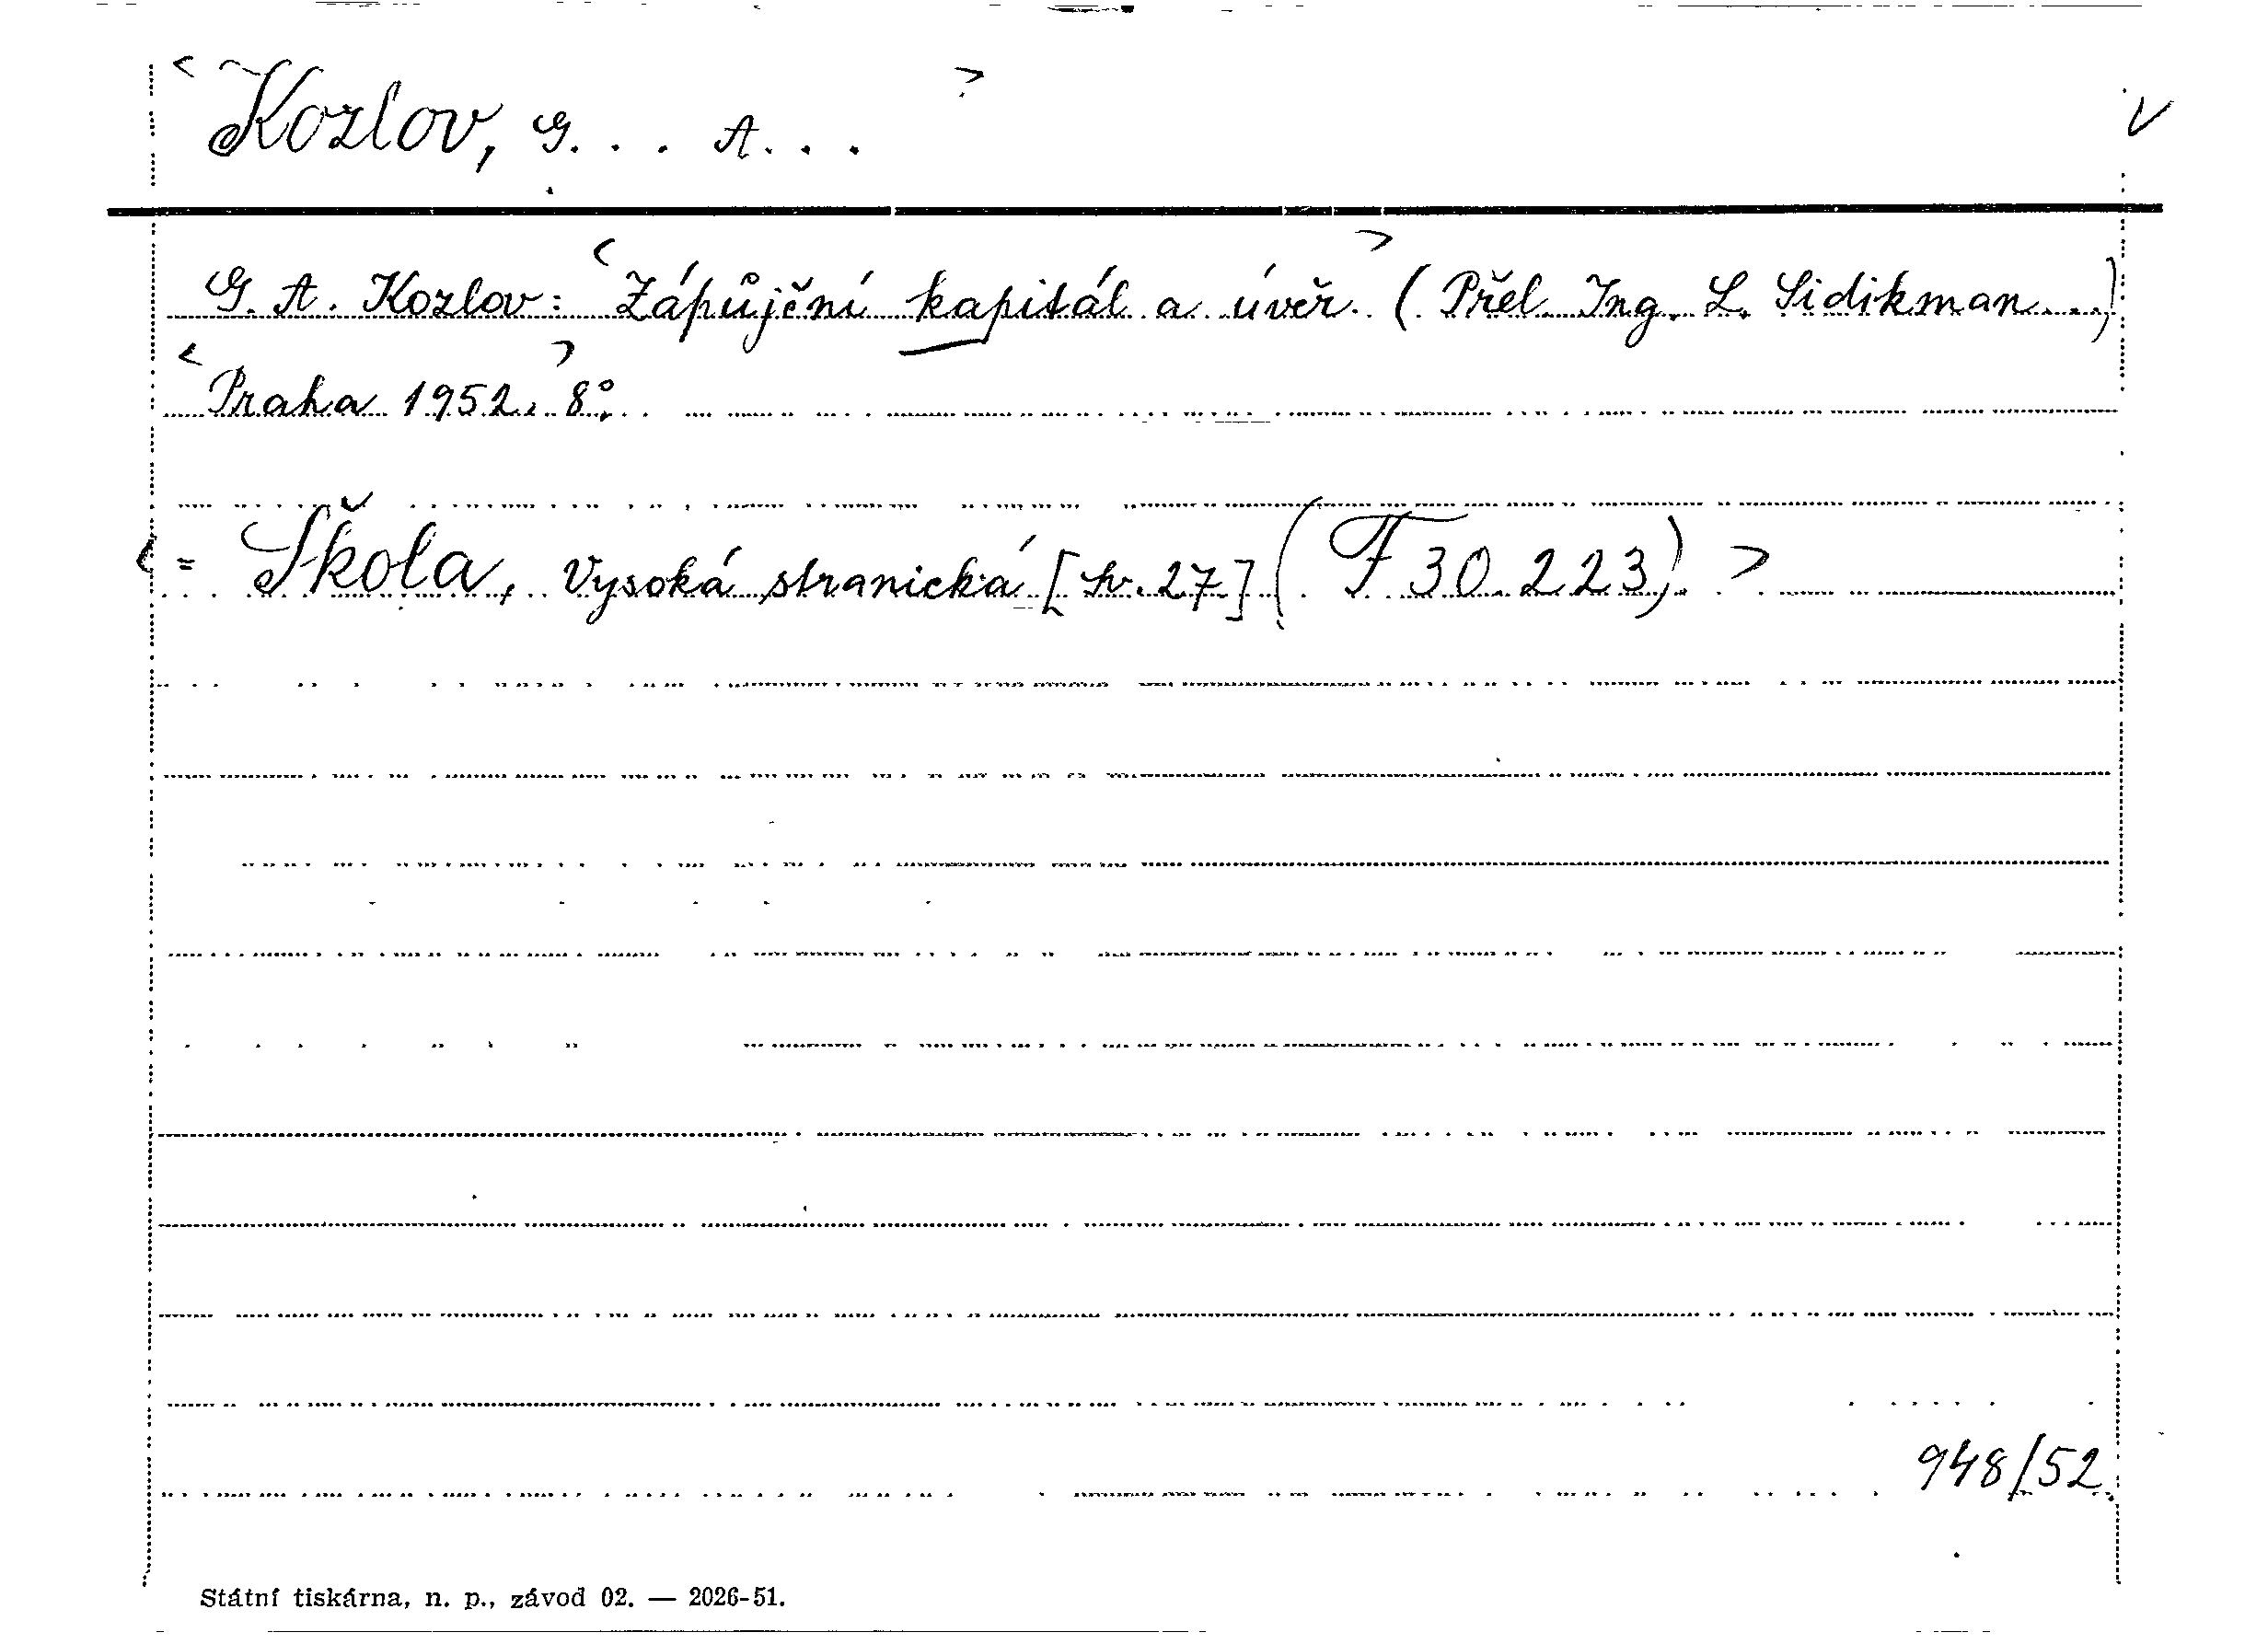 <Kozlov, G... A...> V
G. A. Kozlov: <Zápůjční kapitál a úvěr.> (Přel. Ing. L. Sidikman...)
<Praha 1952.> 8°.
<= Škola, Vysoká stranická [sv. 27] (F 30.223) >
948/52.
Státní tiskárna, n. p., závod 02. — 2026-51.